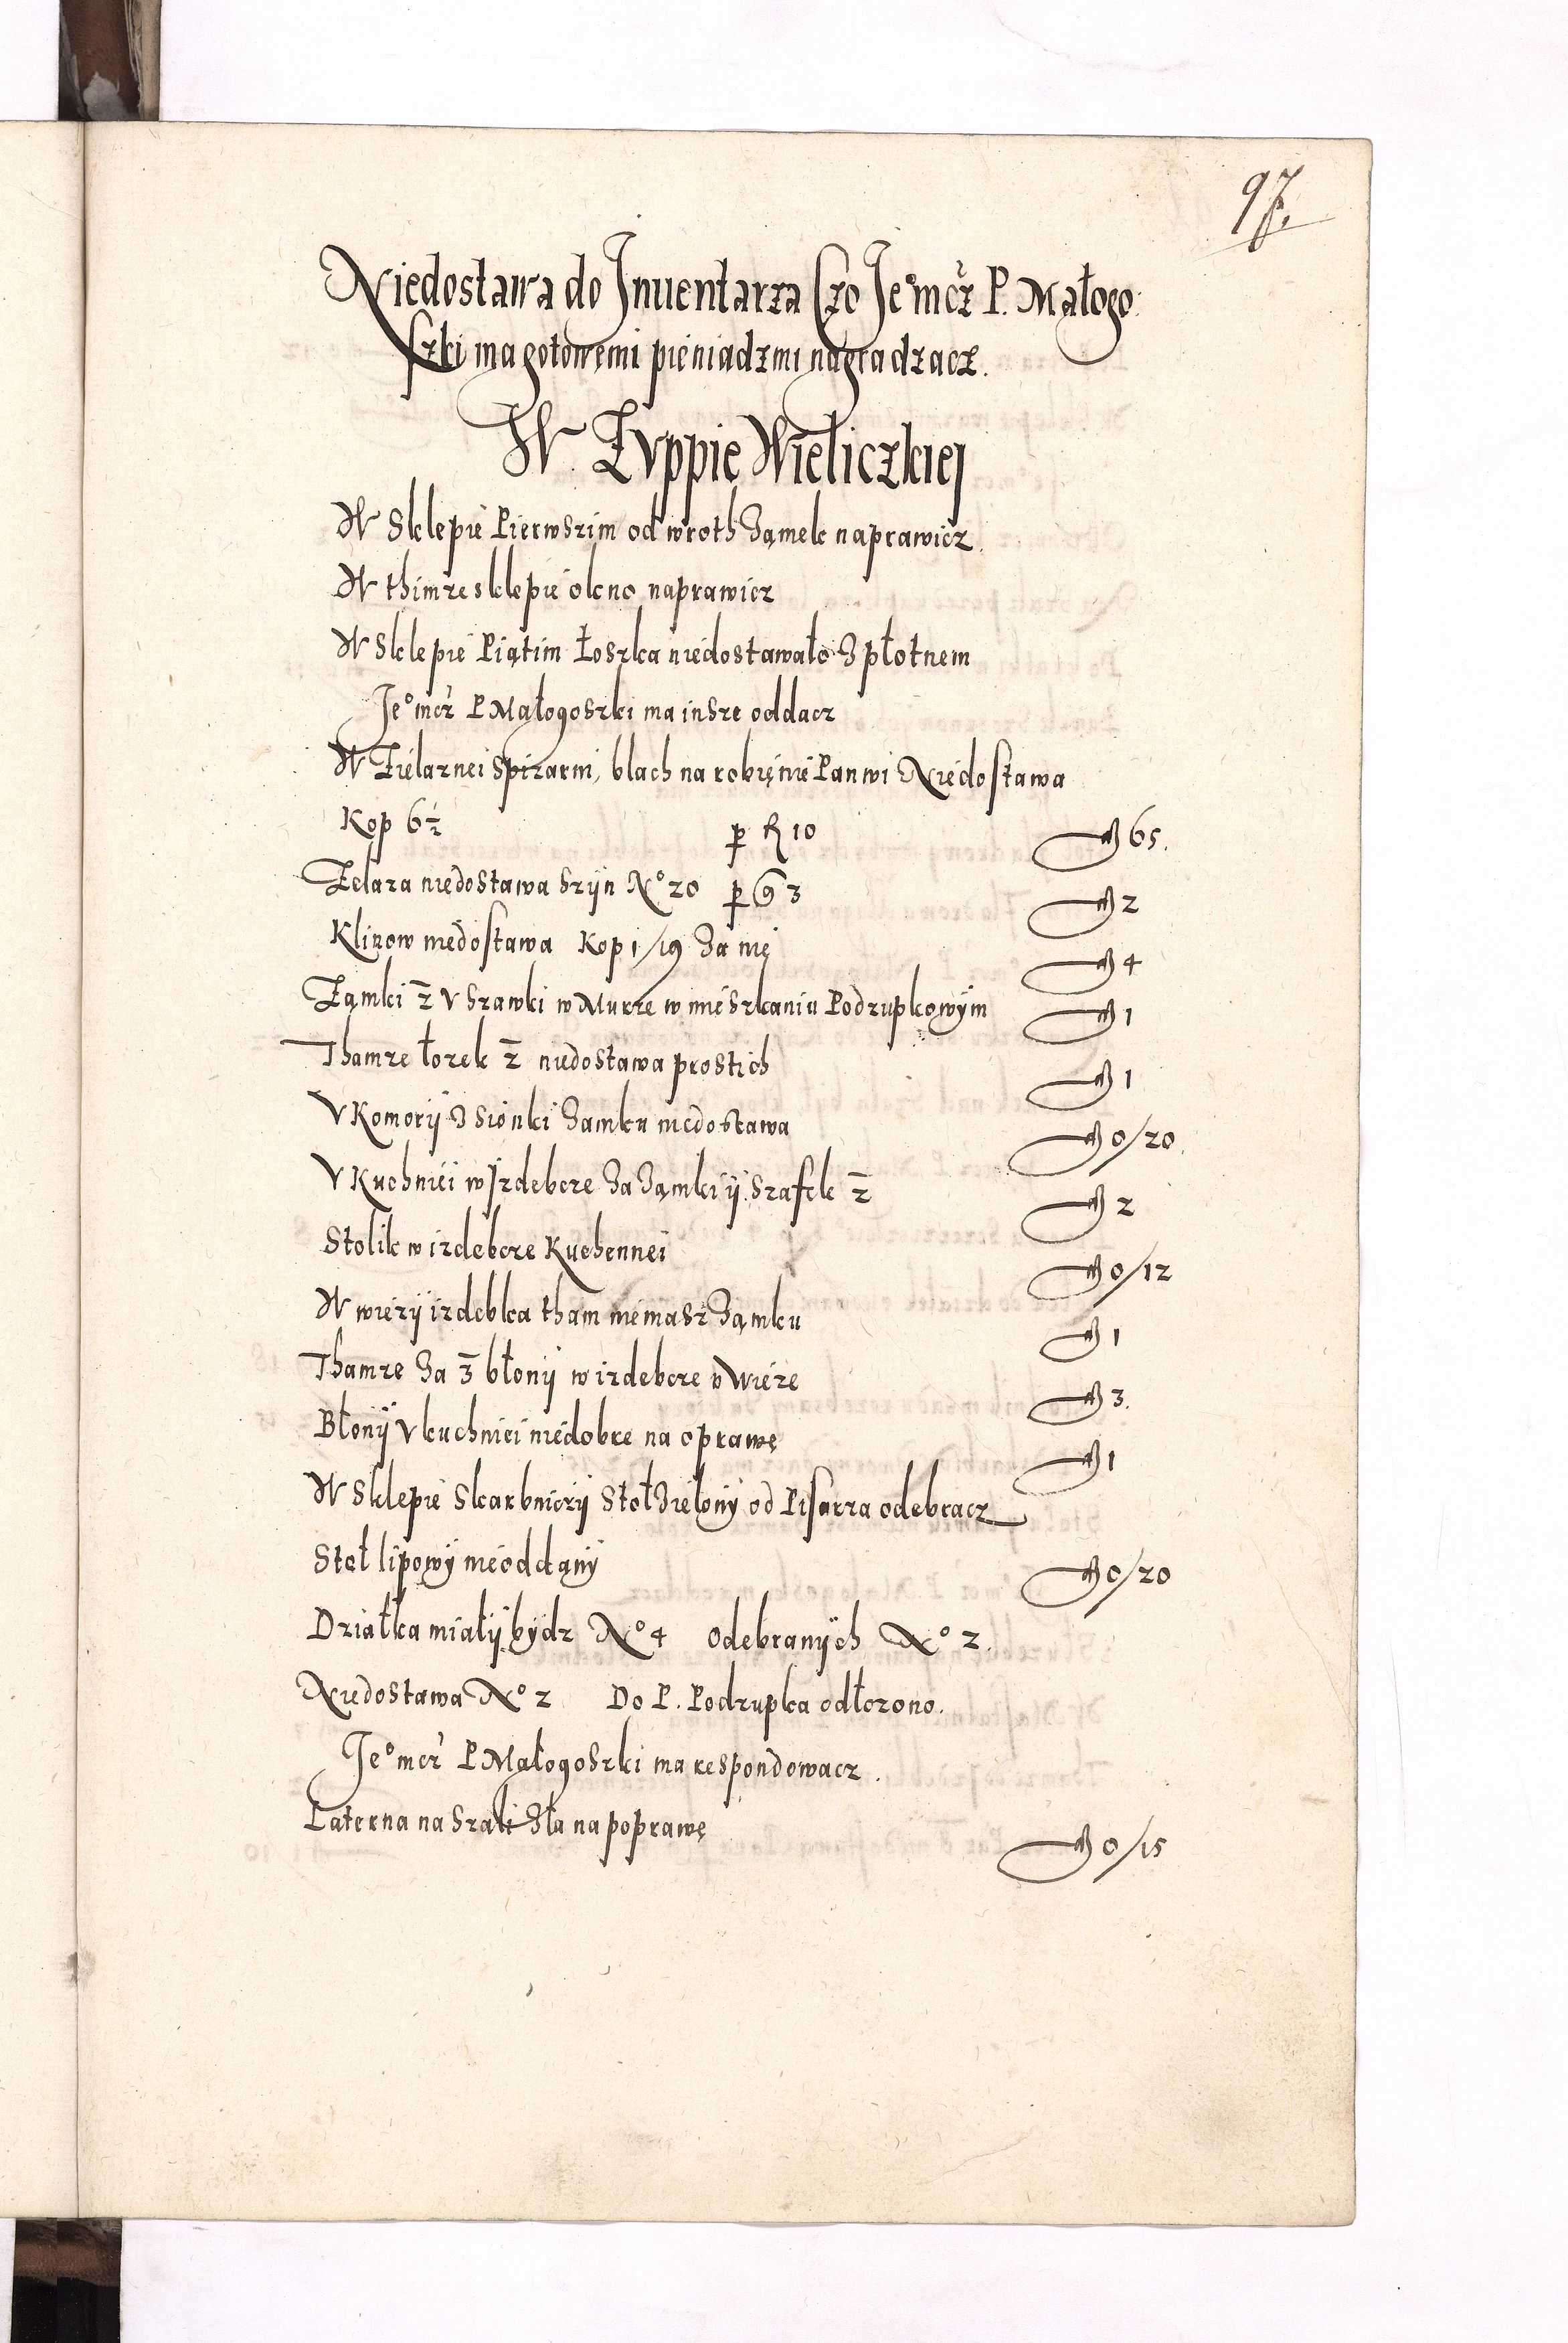 97.
Niedostawa do Inuentarza Czo Jeᵒ mcz P. Małogo
szki ma gotowemi pieniadzmi nagradzacz.
W Zvppie Wieliczkiej
W Sklepie Pierwszim od wroth Zamek naprawicz.
W thimze sklepie okno naprawicz
W Sklepie Piątim Łoszka niedostawało Z płotnem
Jeᵒ mcz P Małogoszki ma insze oddacz
W Zielaznei Spizarni, blach na robięnie Panwi Niedostawa
Kop 6½ p fl 10 fl 65.
Zelaza niedostawa Szyn Nᵒ 20 p g 3 fl 2
Klinow niedostawa Kop 1/19 Za nię fl 4
Ząmki 2 V Szawki w Murze w mieszkaniu Podzupkowym fl 1
Thamze łozek 2 niedostawa prostich fl 1
V Komory Z Sionki Zamku niedostawa fl 0/20.
V Kuchniei w Izdebcze Za Ząmki y Szafek 2 fl 2
Stolik w izdebcze Kuchennei fl 0/12
W wiezy izdebka tham niemasz Ząmku fl 1
Thamze Za 3 błony w izdebcze v Wieze fl 3.
Błony V kuchniei niedobre na oprawę fl 1
W Sklepie Skarbniczy Stoł Zielony od Pisarza odebracz
Stoł lipowy nieoddany fl 0/20
Działka miały bydz Nᵒ 4 Odebranych Nᵒ 2.
Niedostawa Nᵒ 2 Do P. Podzupka odłczono.
Jeᵒ mcz P Małogoszki ma respondowacz.
Laterna na Szali Zła na poprawę fl 0/15